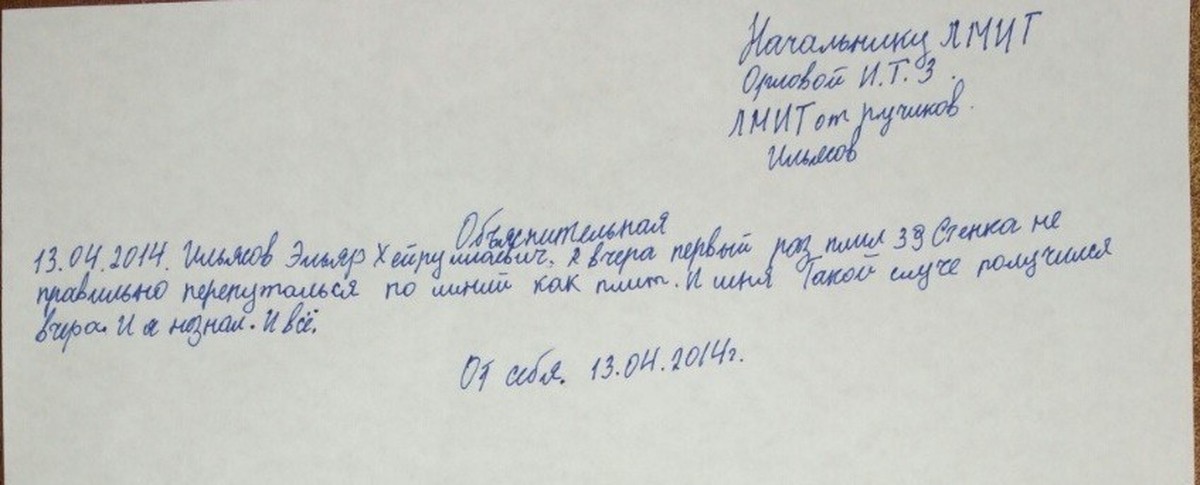 Начальнику ЛМИТ
Орловой И.Т. З.
ЛМИТ от ручиков.
Ильясов
Объяснительная
13.04.2014. Ильясов Эльяр Хейруллаевич, я вчера первый раз пилил 39 Стенка не
правильно перепуталься по линий как плит. И меня Такой случе получился
вчера. И я незнал. И всё.
От себя. 13.04.2014г.